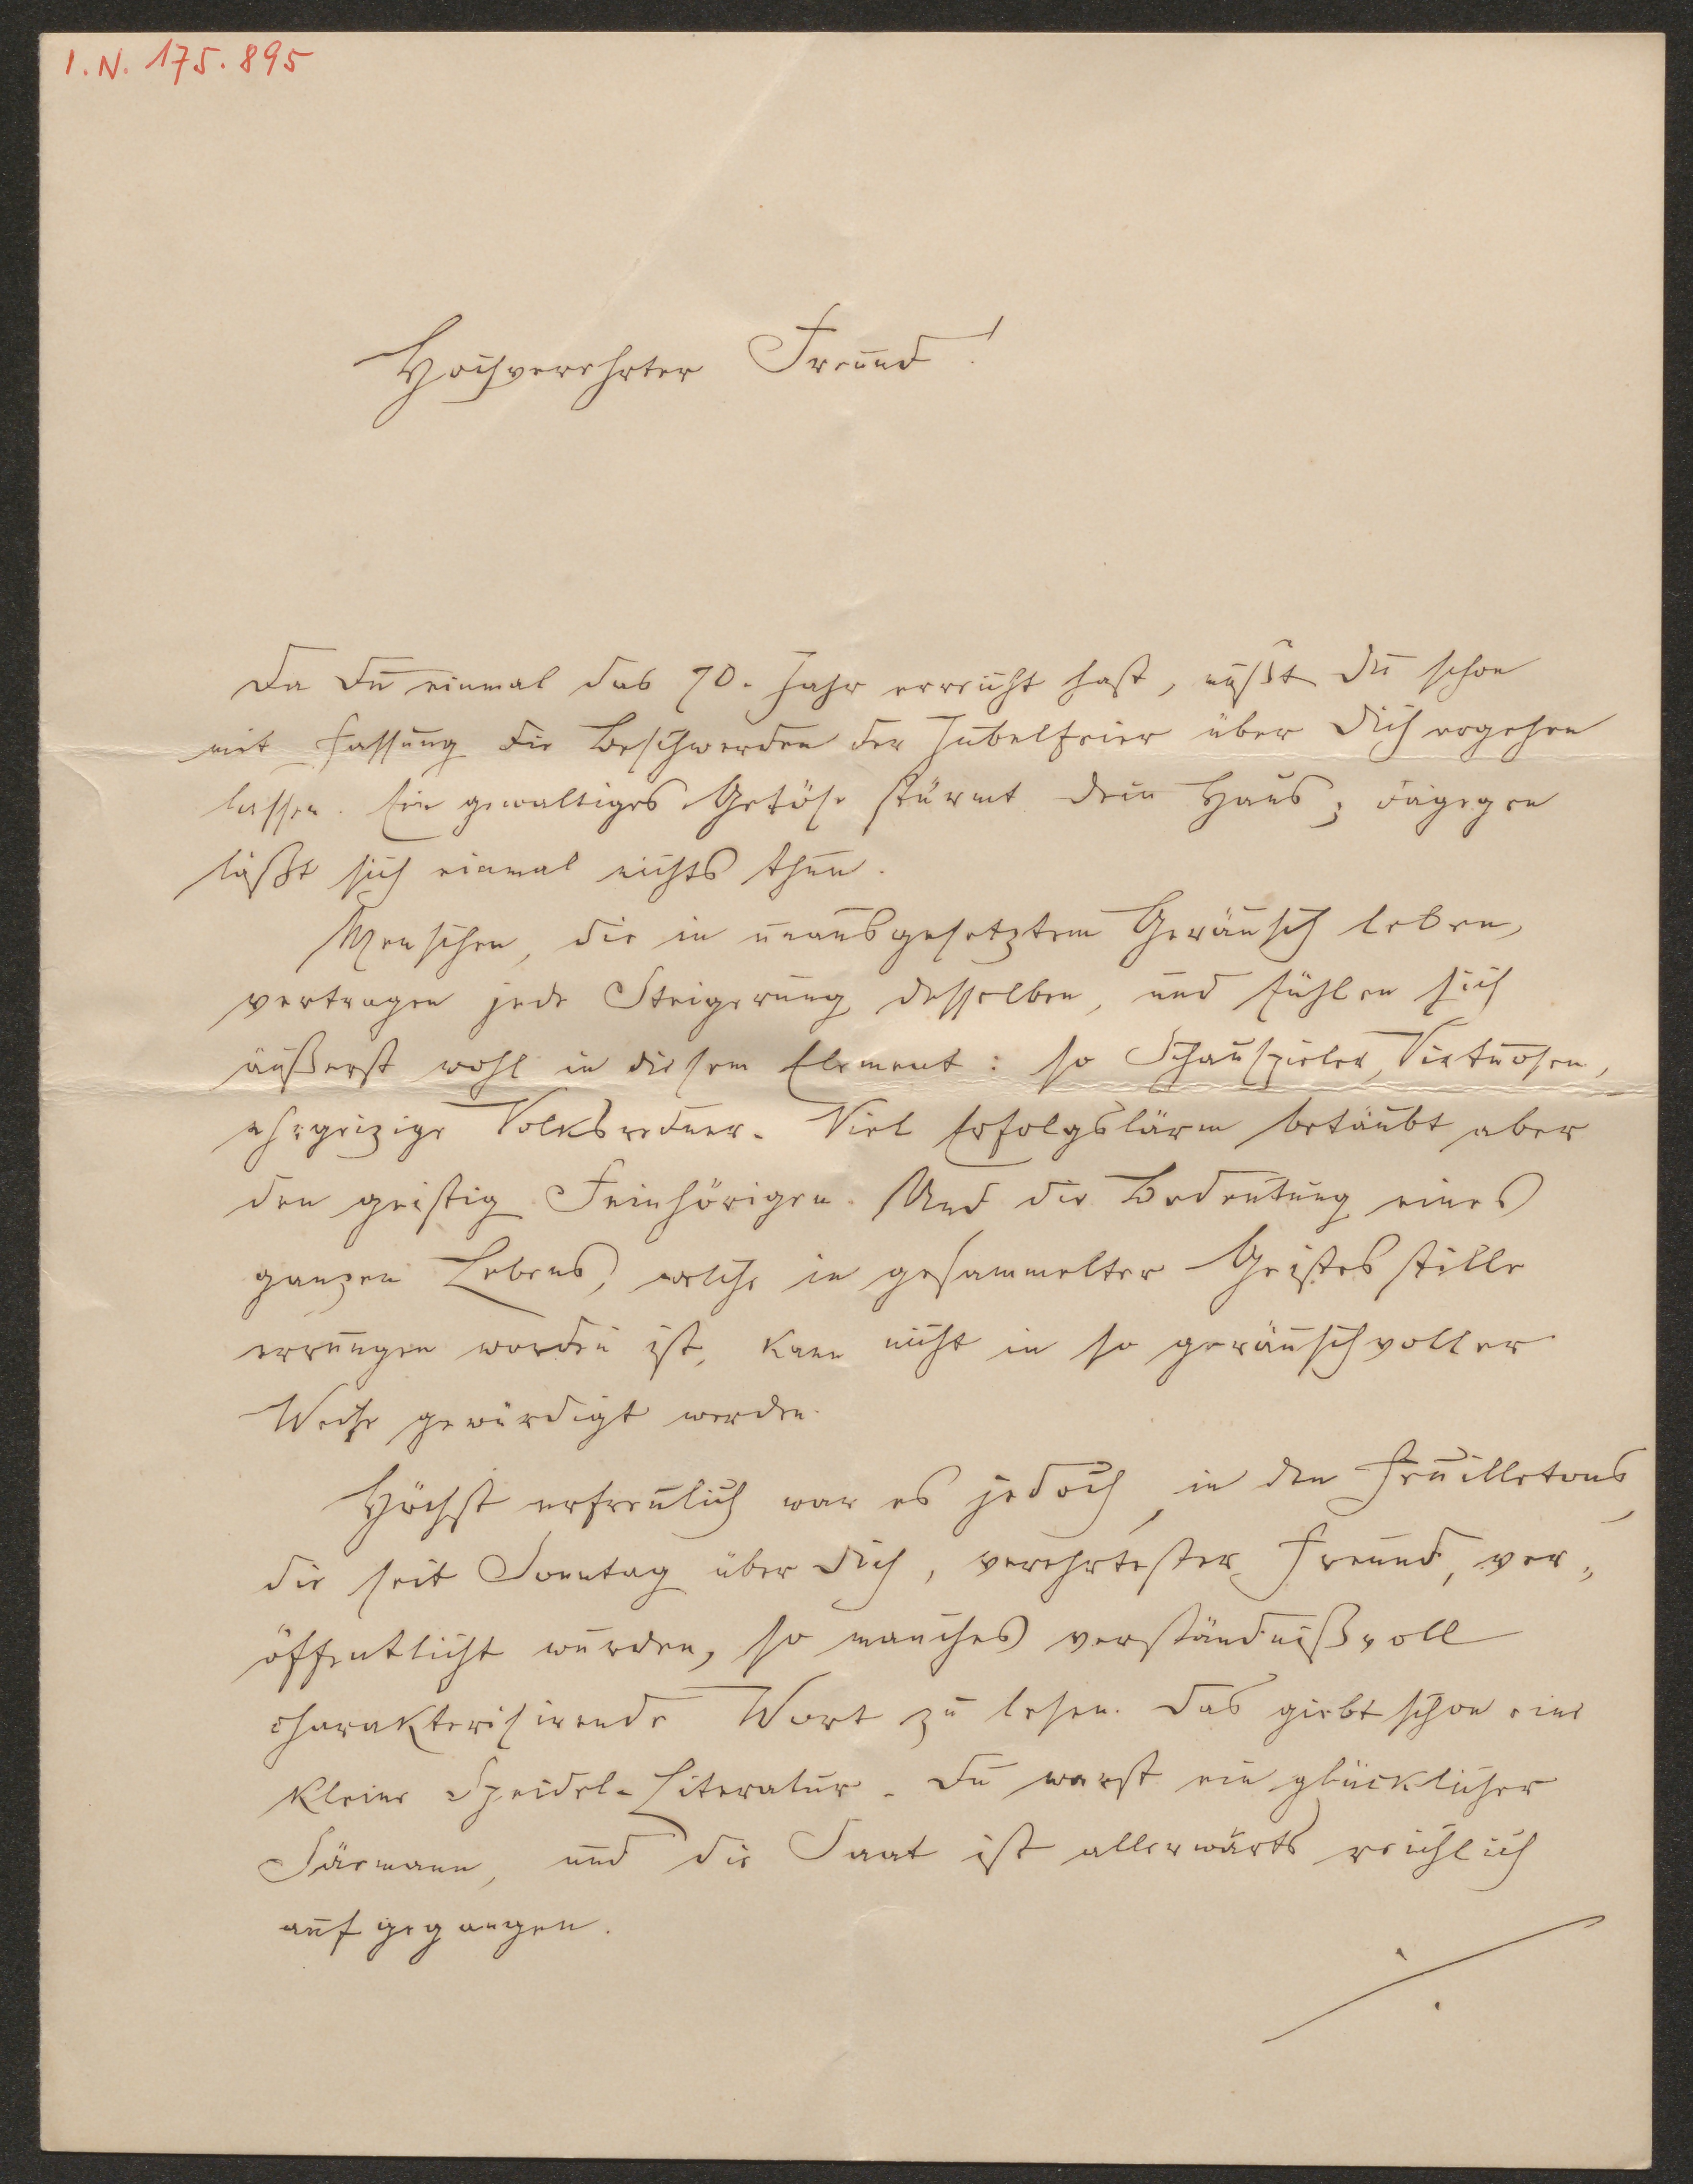 I. N. 175.895
Hochverehrter Freund!
Da Du einmal das 70. Jahr erreicht hast, mußt Du schon
mit Fassung die Beschwerden der Jubelfeier über Dich ergehen
lassen. Ein gewaltiges Getöse stürmt Dein Haus; dagegen
läßt sich einmal nichts thun.
Menschen, die in unausgesetztem Geräusch leben,
vertragen jede Steigerung desselben, und fühlen sich
äußerst wohl in diesem Element: so Schauspieler, Virtuosen,
ehrgeizige Volksredner. Viel Erfolgslärm betäubt aber
den geistig Feinhörigen. Und die Bedeutung eines
ganzen Lebens, welche in gesammelter Geistesstille
errungen worden ist, kann nicht in so geräuschvoller
Weise gewürdigt werden.
Höchst erfreulich war es jedoch, in den Feuilletons,
die seit Sonntag über Dich, verehrtester Freund, ver„
öffentlicht wurden, so manches verständnißvoll
charakterisirende Wort zu lesen. Das giebt schon eine
kleine Speidel-Literatur. Du warst ein glücklicher
Säemann, und die Saat ist allerwärts reichlich
aufgegangen.
./.